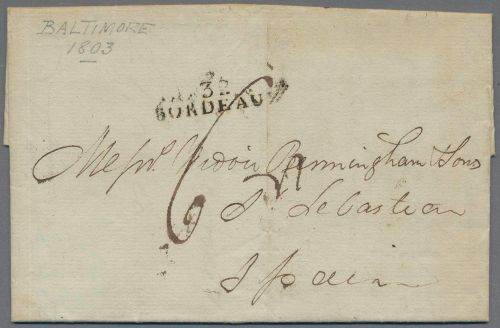 BALTIMORE
1803
32
BORDEAUX
6
Messrs. Vidow Bermingham & Sons
St. Sebastian
Spain